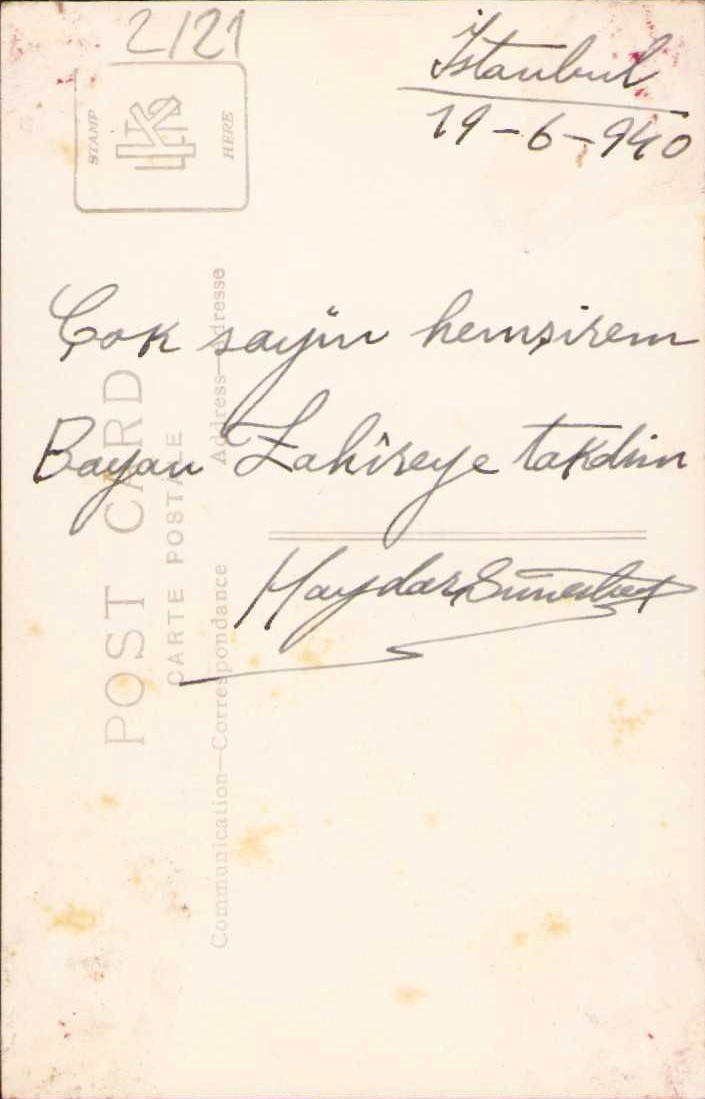 2/21
İstanbul
19-6-940
STAMP HERE
Çok sayın hemşirem
Bayan Zakireye takdim
Haydar
POST CARD
CARTE POSTALE
Communication—Correspondance Address—Adresse